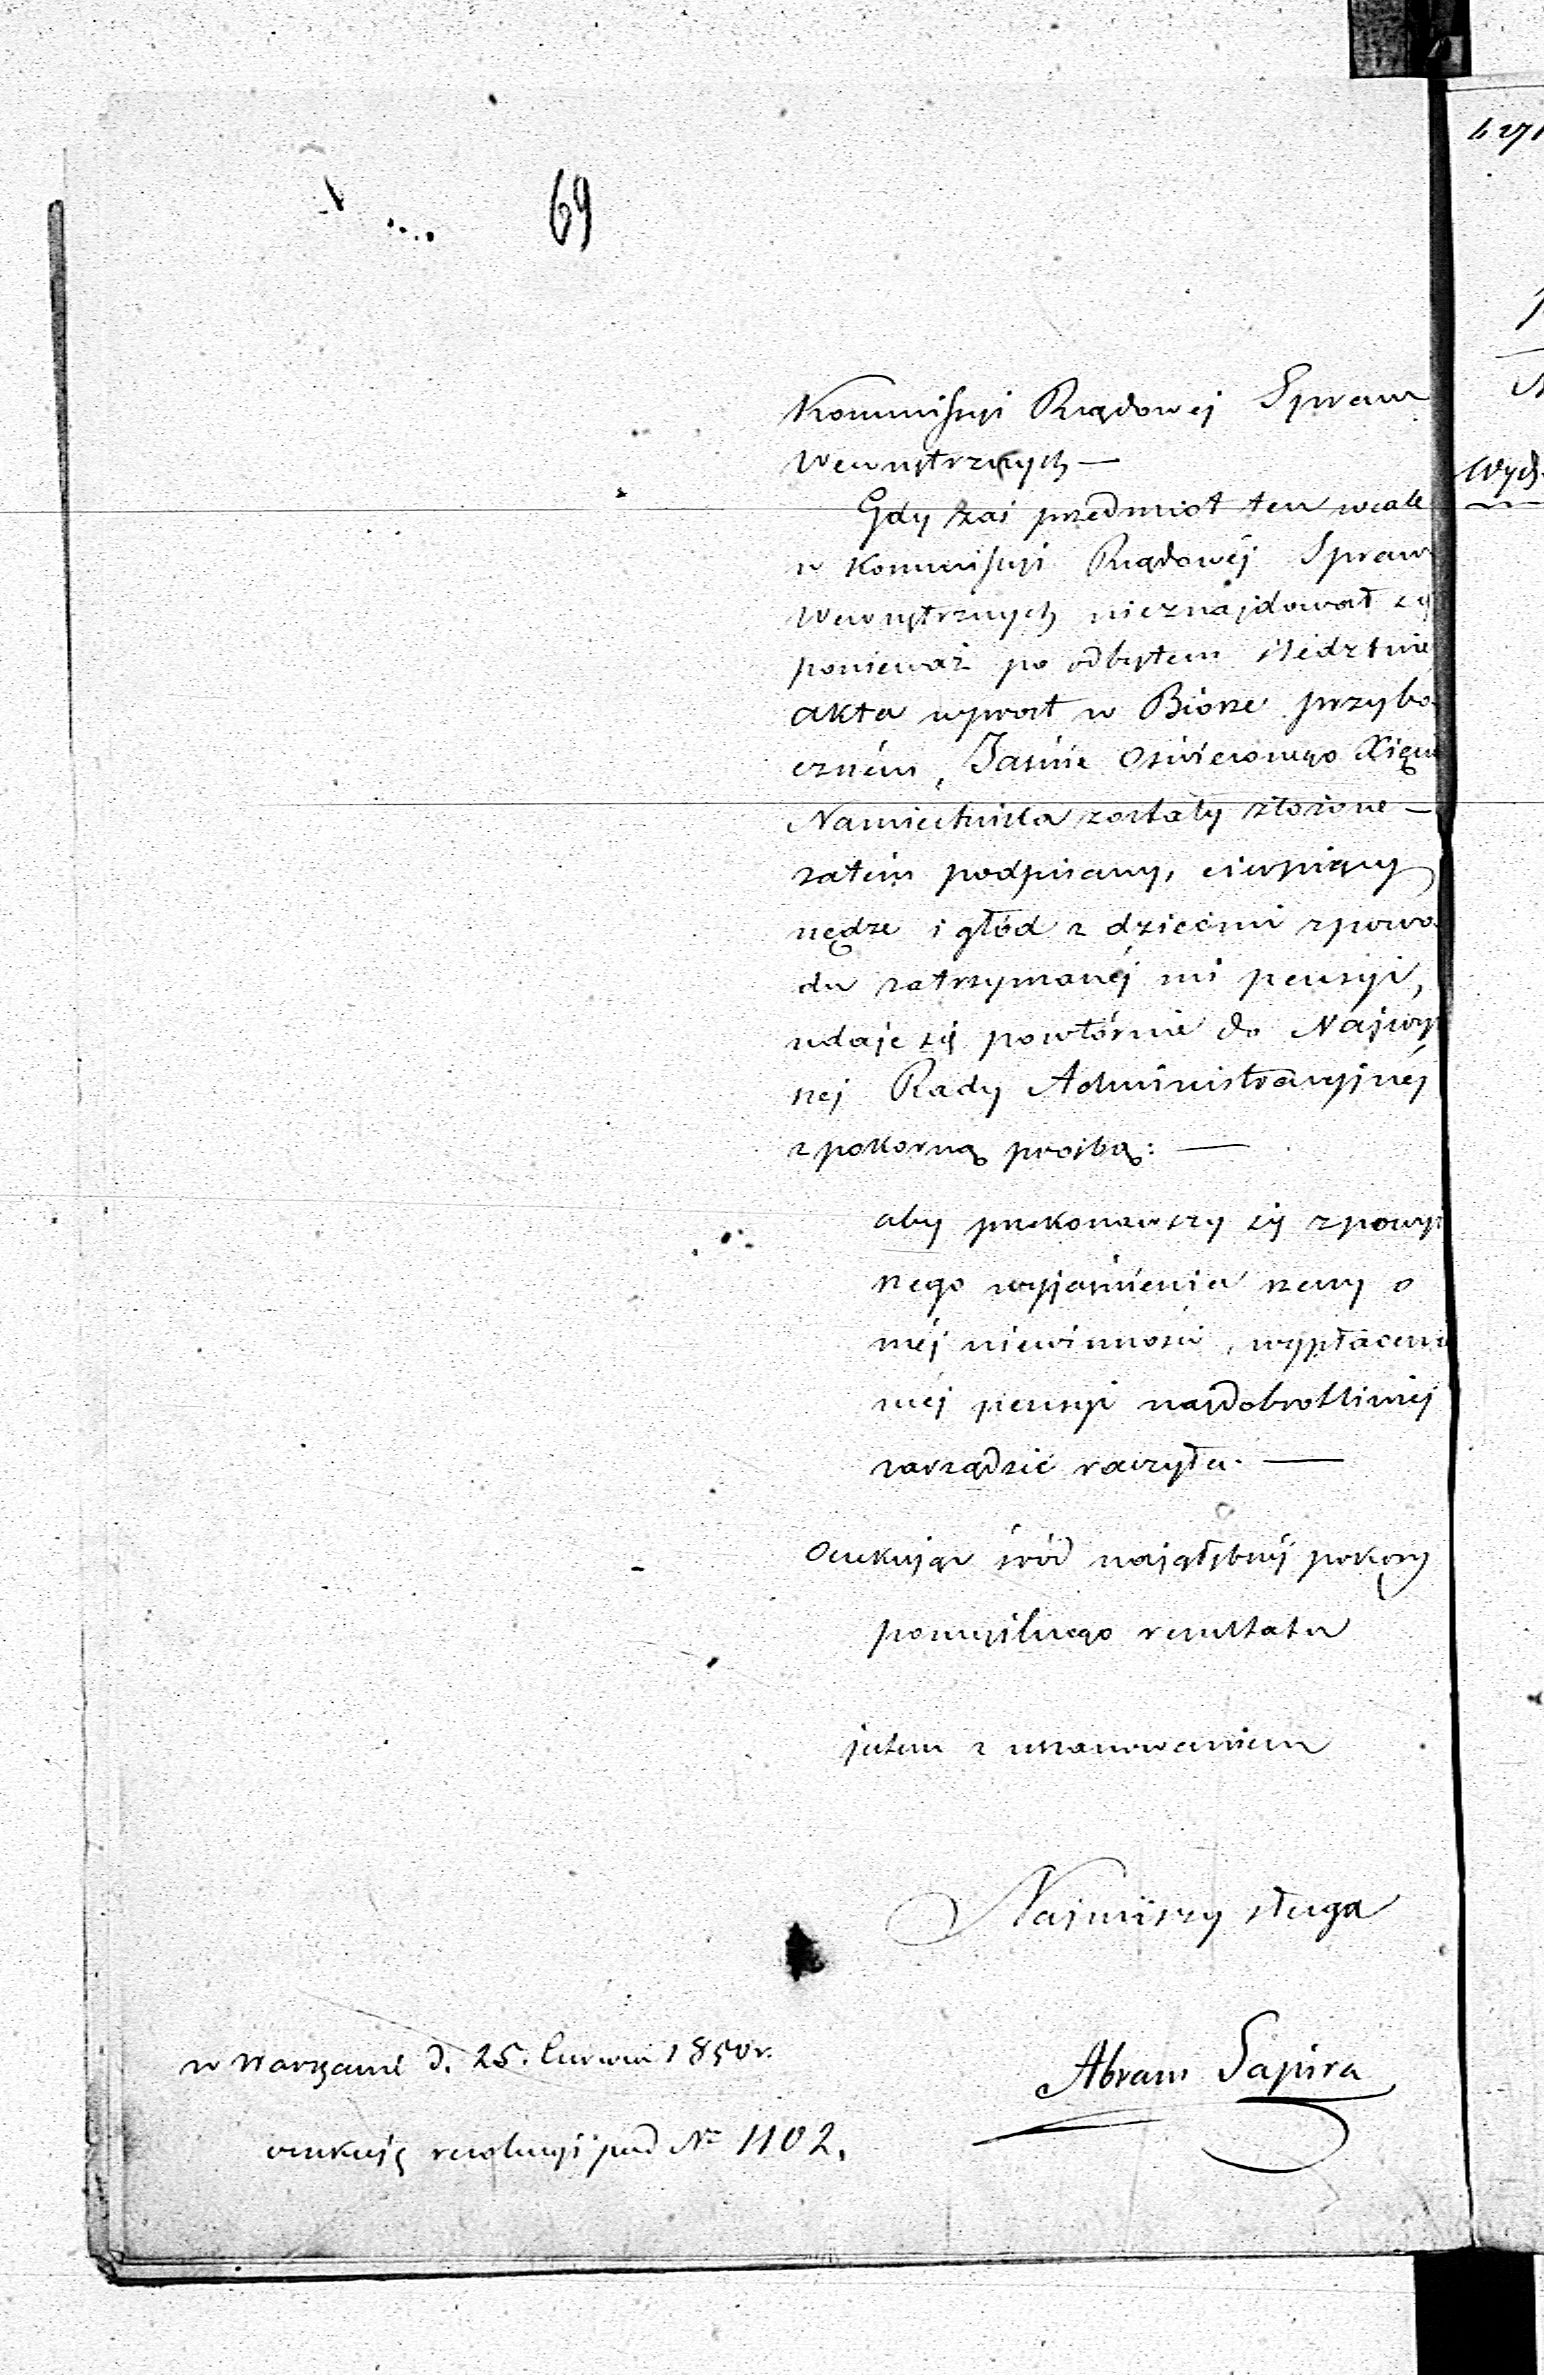 69
Kommissyi Rządowej Spraw
Wewnętrznych —
Gdy zaś przedmiot ten wcale
w Kommissyi Rządowéj Spraw
Wewnętrznych nieznajdował się
ponieważ po odbytem śledztwie
akta wprost w Biórze przybo
czném, Jaśnie Oświeconego Xięcia
Namiestnika zostały złożone —
zatém podpisany, cierpiący
nędze i głód z dziećmi zpowo
du zatrzymanéj mi pensyi,
udaje się powtórnie do Najwyż
szej Rady Administracyjnéj
z pokorną prośbą: —
aby przekonawszy się zpowyż
szego wyjaśnienia rzeczy o
méj niewinności, wypłacenie
méj pensyi najdobrotliwiej
zarządzić raczyła. —
Oczekując śród najgłębszéj pokory
pomyślnego rezultatu
jestem z uszanowaniem
Najniższy sługa
Abram Sapira
w Warszawie d. 25. Czerwca 1850 r.
oczekuję rezolucyi pod Nr 1102.